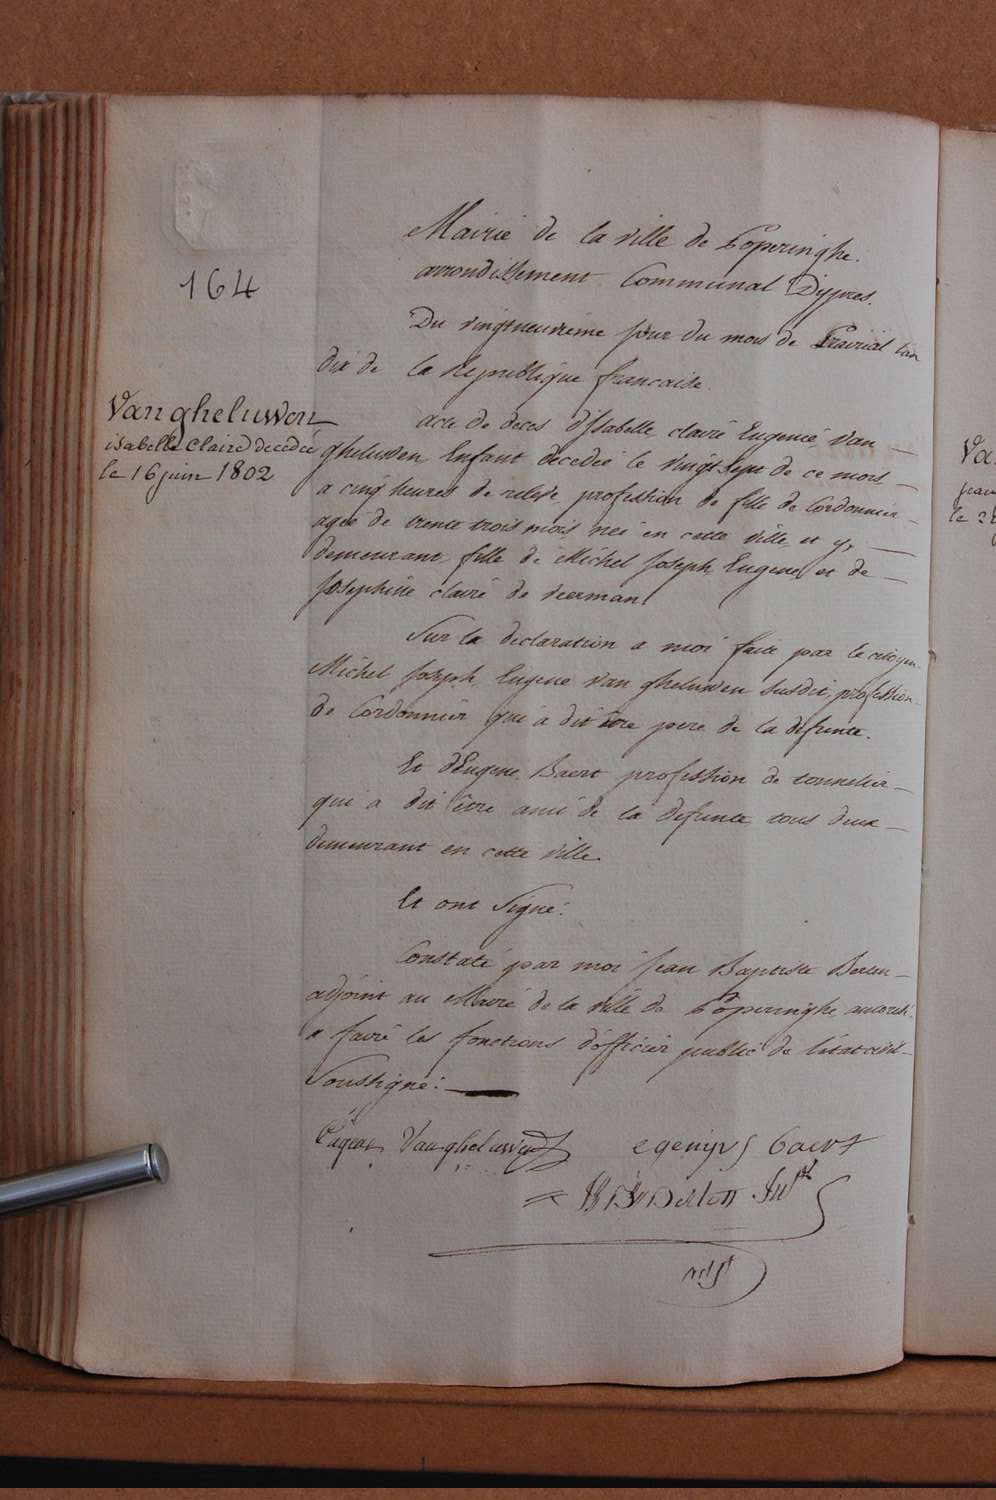 164
Vangheluwen
isabelle Claire decedée
le 16 juin 1802
Mairie de la ville de Poperinghe.
arrondissement Communal D'ypres.
Du vingtneuvieme jour du mois de Prairial l'an
dix de la Republique francaise.
acte de deces d'Isabelle claire Eugenie Van
gheluwen Enfant decedée le vingt sept de ce mois
a cinq heures de relevé profession de fille de Cordonnier
agée de trente trois mois née en cette ville et y
demeurant, fille de Michel Joseph Eugene et de
Josephine claire de veerman
Sur la declaration a moi faite par le citoyen
Michel Joseph Eugene van gheluwen susdit, profession
de Cordonnier qui a dit être pere de la defunte.
Et d'Eugene Baert profession de tonnelier
qui a dit être ami de la defunte, tous deux
demeurant en cette ville.
Et ont Signé:
Constaté par moi Jean Baptiste Berten
adjoint au Maire de la ville de Poperinghe autorisé
a faire les fonctions d'officier public de l'état civil
Soussigné:
Eugene Vangheluwen
egenijus baert
Berten
adjt
Va
le 2